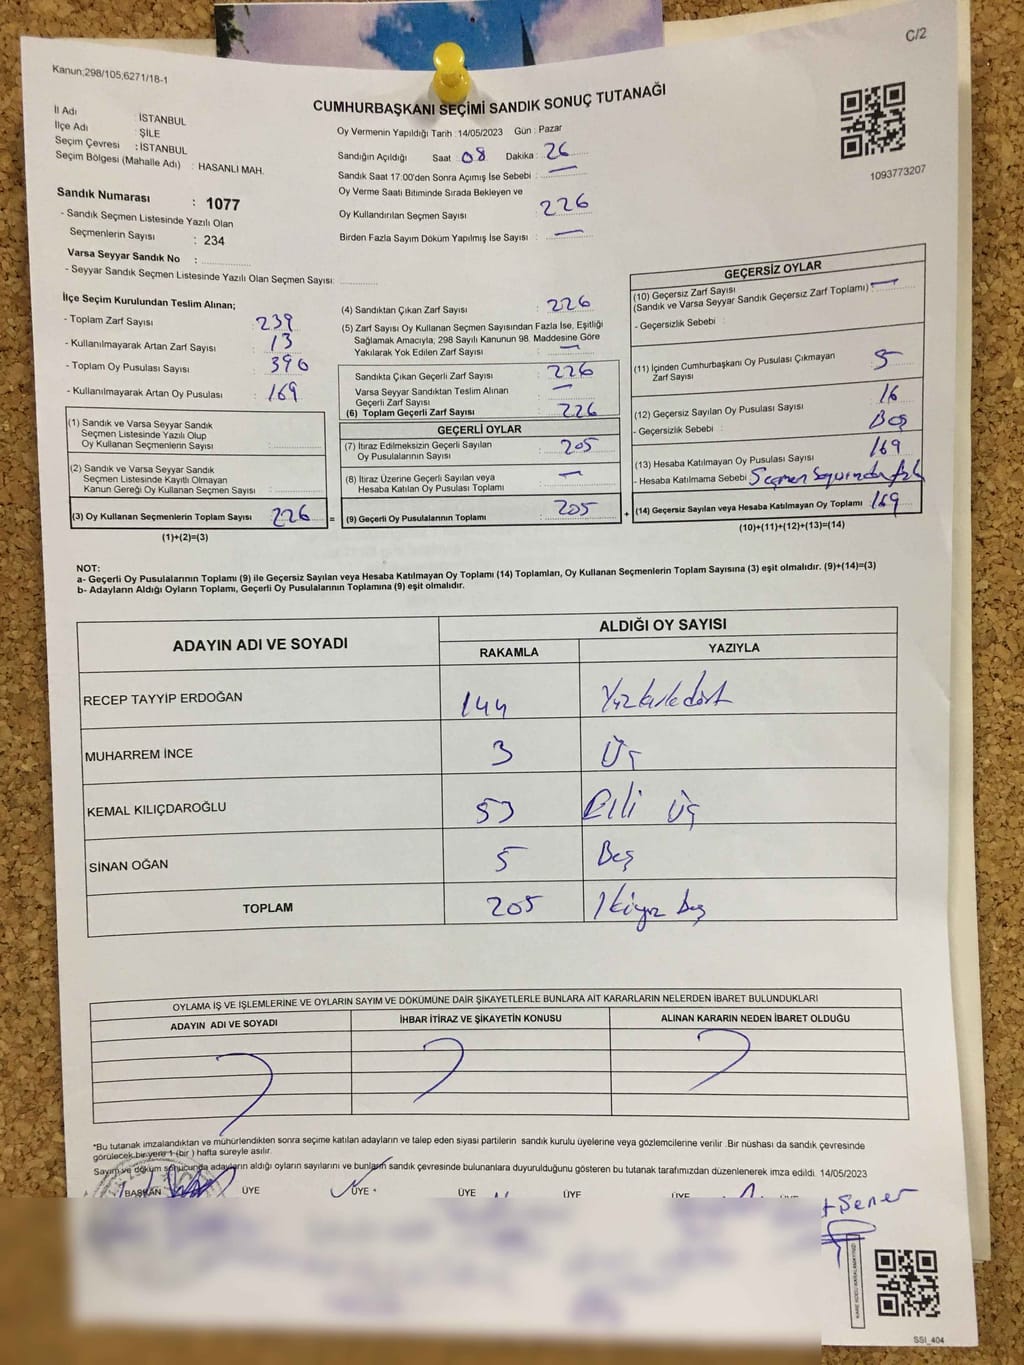 C/2
Kanun;298/105;6271/18-1
CUMHURBAŞKANI SEÇİMİ SANDIK SONUÇ TUTANAĞI
İl Adı : İSTANBUL
İlçe Adı : ŞİLE
Seçim Çevresi : İSTANBUL
Seçim Bölgesi (Mahalle Adı) : HASANLI MAH.
Oy Vermenin Yapıldığı Tarih :14/05/2023 Gün : Pazar
Sandığın Açıldığı Saat 08 Dakika : 26
Sandık Saat 17:00'den Sonra Açımış İse Sebebi : —
Oy Verme Saati Bitiminde Sırada Bekleyen ve
Oy Kullandırılan Seçmen Sayısı 226
Birden Fazla Sayım Döküm Yapılmış İse Sayısı : —
1093773207
Sandık Numarası : 1077
- Sandık Seçmen Listesinde Yazılı Olan
Seçmenlerin Sayısı : 234
Varsa Seyyar Sandık No :
- Seyyar Sandık Seçmen Listesinde Yazılı Olan Seçmen Sayısı:
İlçe Seçim Kurulundan Teslim Alınan;
- Toplam Zarf Sayısı : 239
- Kullanılmayarak Artan Zarf Sayısı : 13
- Toplam Oy Pusulası Sayısı : 390
- Kullanılmayarak Artan Oy Pusulası : 169
(1) Sandık ve Varsa Seyyar Sandık
Seçmen Listesinde Yazılı Olup
Oy Kullanan Seçmenlerin Sayısı :
(2) Sandık ve Varsa Seyyar Sandık
Seçmen Listesinde Kayıtlı Olmayan
Kanun Gereği Oy Kullanan Seçmen Sayısı :
(3) Oy Kullanan Seçmenlerin Toplam Sayısı : 226 =
(1)+(2)=(3)
(4) Sandıktan Çıkan Zarf Sayısı : 226
(5) Zarf Sayısı Oy Kullanan Seçmen Sayısından Fazla İse, Eşitliği
Sağlamak Amacıyla, 298 Sayılı Kanunun 98. Maddesine Göre
Yakılarak Yok Edilen Zarf Sayısı : —
Sandıkta Çıkan Geçerli Zarf Sayısı : 226
Varsa Seyyar Sandıktan Teslim Alınan
Geçerli Zarf Sayısı : —
(6) Toplam Geçerli Zarf Sayısı : 226
GEÇERLİ OYLAR
(7) İtiraz Edilmeksizin Geçerli Sayılan
Oy Pusulalarının Sayısı : 205
(8) İtiraz Üzerine Geçerli Sayılan veya
Hesaba Katılan Oy Pusulası Toplamı : —
(9) Geçerli Oy Pusulalarının Toplamı : 205 +
GEÇERSİZ OYLAR
(10) Geçersiz Zarf Sayısı
(Sandık ve Varsa Seyyar Sandık Geçersiz Zarf Toplamı) : —
- Geçersizlik Sebebi :
(11) İçinden Cumhurbaşkanı Oy Pusulası Çıkmayan
Zarf Sayısı : 5
(12) Geçersiz Sayılan Oy Pusulası Sayısı : 16
- Geçersizlik Sebebi : Boş
(13) Hesaba Katılmayan Oy Pusulası Sayısı : 169
- Hesaba Katılmama Sebebi : Seçmen Sayısından fazla
(14) Geçersiz Sayılan veya Hesaba Katılmayan Oy Toplamı : 169
(10)+(11)+(12)+(13)=(14)
NOT:
a- Geçerli Oy Pusulalarının Toplamı (9) ile Geçersiz Sayılan veya Hesaba Katılmayan Oy Toplamı (14) Toplamları, Oy Kullanan Seçmenlerin Toplam Sayısına (3) eşit olmalıdır. (9)+(14)=(3)
b- Adayların Aldığı Oyların Toplamı, Geçerli Oy Pusulalarının Toplamına (9) eşit olmalıdır.
ADAYIN ADI VE SOYADI ALDIĞI OY SAYISI
RAKAMLA YAZIYLA
RECEP TAYYİP ERDOĞAN 144 Yüzkırkdört
MUHARREM İNCE 3 Üç
KEMAL KILIÇDAROĞLU 53 Elli üç
SİNAN OĞAN 5 Beş
TOPLAM 205 İkiyüz beş
OYLAMA İŞ VE İŞLEMLERİNE VE OYLARIN SAYIM VE DÖKÜMÜNE DAİR ŞİKAYETLERLE BUNLARA AİT KARARLARIN NELERDEN İBARET BULUNDUKLARI
ADAYIN ADI VE SOYADI İHBAR İTİRAZ VE ŞİKAYETİN KONUSU ALINAN KARARIN NEDEN İBARET OLDUĞU
*Bu tutanak imzalandıktan ve mühürlendikten sonra seçime katılan adayların ve talep eden siyasi partilerin sandık kurulu üyelerine veya gözlemcilerine verilir .Bir nüshası da sandık çevresinde
görülecek bir yere 1 (bir ) hafta süreyle asılır.
Sayım ve döküm sonucunda adayların aldığı oyların sayılarını ve bunların sandık çevresinde bulunanlara duyurulduğunu gösteren bu tutanak tarafımızdan düzenlenerek imza edildi. 14/05/2023
BAŞKAN ÜYE ÜYE ÜYE ÜYE ÜYE ÜYE
Şener
SSI_404